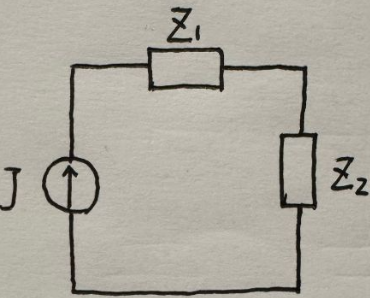 Z₁
J
Z₂